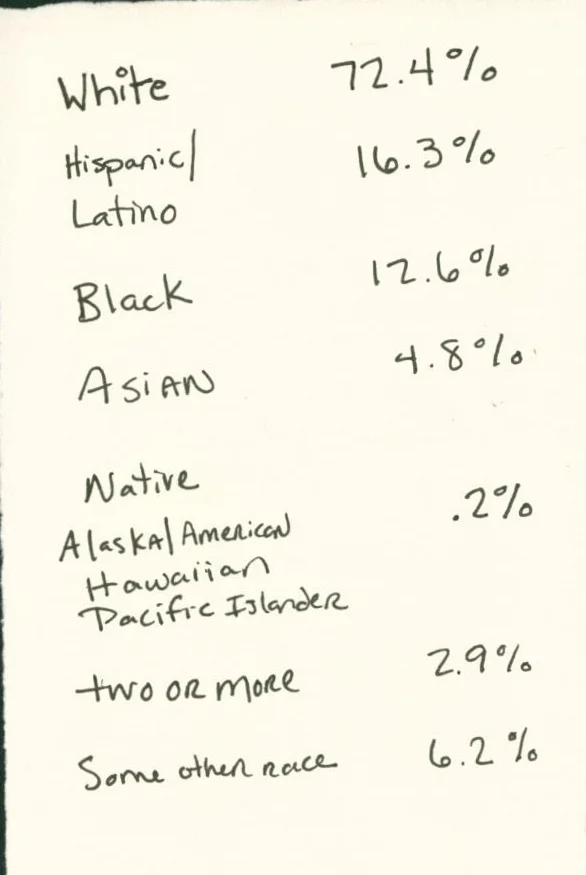 White 72.4%
Hispanic/ 16.3%
Latino
Black 12.6%
Asian 4.8%
Native
Alaska/American .2%
Hawaiian
Pacific Islander
two or more 2.9%
Some other race 6.2%